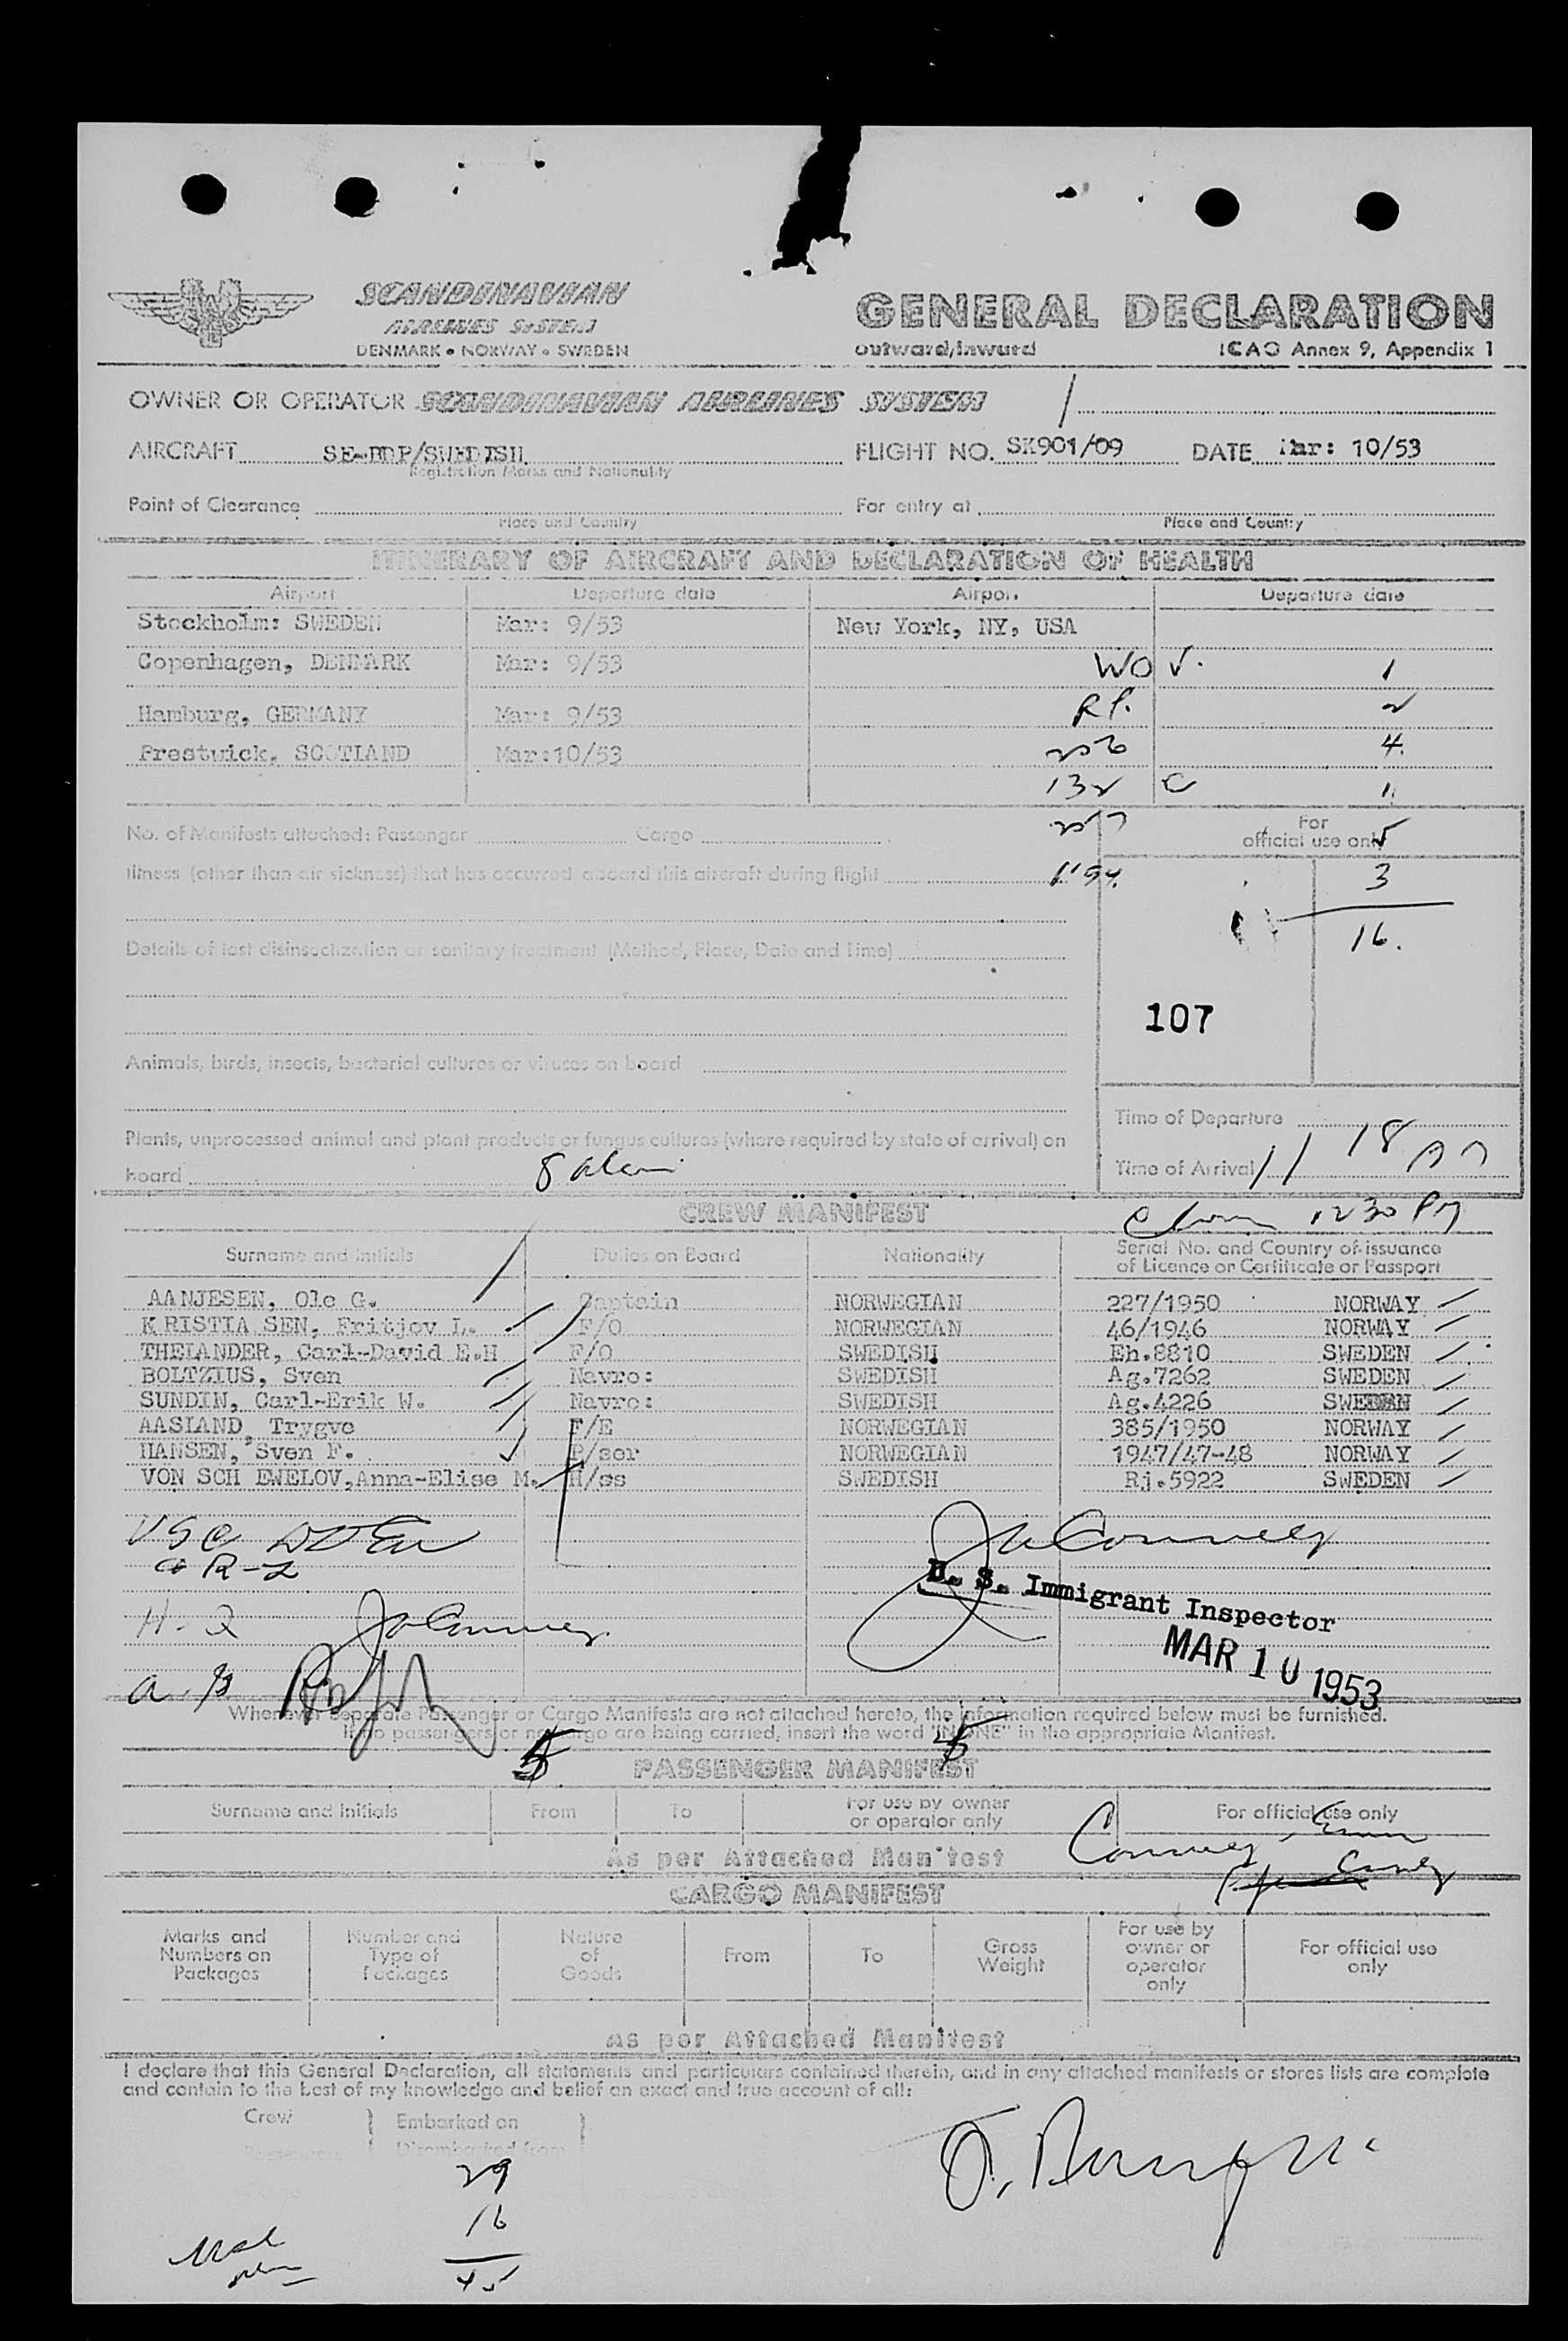 SCANDINAVIAN
AIRLINES SYSTEM
DENMARK • NORWAY • SWEDEN
GENERAL DECLARATION
outward/inward ICAO Annex 9, Appendix 1
OWNER OR OPERATOR SCANDINAVIAN AIRLINES SYSTEM
AIRCRAFT SE-BDP/SWEDISH FLIGHT NO. SK901/09 DATE Mar: 10/53
Registration Marks and Nationality
Point of Clearance For entry at
Place and Country Place and Country
ITINERARY OF AIRCRAFT AND DECLARATION OF HEALTH
Airport Departure date Airport Departure date
Stockholm: SWEDEN Mar: 9/53 New York, NY, USA
Copenhagen, DENMARK Mar: 9/53 WO V. 1
Hamburg, GERMANY Mar: 9/53 RP. 2
Prestwick, SCOTLAND Mar:10/53 4.
132 C 1
No. of Manifests attached: Passenger Cargo
For
official use only
5
Illness (other than air sickness) that has occurred aboard this aircraft during flight
3
16.
Details of last disinsectization or sanitary treatment (Method, Place, Date and Time)
107
Animals, birds, insects, bacterial cultures or viruses on board
Time of Departure
Plants, unprocessed animal and plant products or fungus cultures (where required by state of arrival) on
board
Time of Arrival 11 18 AM
CREW MANIFEST
1230 PM
Surname and Initials Duties on Board Nationality Serial No. and Country of issuance
of Licence or Certificate or Passport
AANJESEN, Ole G. Captain NORWEGIAN 227/1950 NORWAY
KRISTIA SEN, Fritjov L. F/O NORWEGIAN 46/1946 NORWAY
THELANDER, Carl-David E.H F/O SWEDISH Eh.8810 SWEDEN
BOLTZIUS, Sven Navro: SWEDISH Ag.7262 SWEDEN
SUNDIN, Carl-Erik W. Navro: SWEDISH Ag.4226 SWEDEN
AASLAND, Trygve F/E NORWEGIAN 385/1950 NORWAY
HANSEN, Sven F. P/ser NORWEGIAN 1947/47-48 NORWAY
VON SCH EWELOV,Anna-Elise M. H/ss SWEDISH Rj.5922 SWEDEN
R-2
U. S. Immigrant Inspector
H-2
MAR 10 1953
Whenever Separate Passenger or Cargo Manifests are not attached hereto, the information required below must be furnished.
If no passengers or no cargo are being carried, insert the word "NONE" in the appropriate Manifest.
5 5
PASSENGER MANIFEST
Surname and Initials From To For use by owner
or operator only For official use only
As per Attached Man'fest
CARGO MANIFEST
Marks and
Numbers on
Packages
Number and
Type of
Packages
Nature
of
Goods
From To Gross
Weight
For use by
owner or
operator
only
For official use
only
As per Attached Manifest
I declare that this General Declaration, all statements and particulars contained therein, and in any attached manifests or stores lists are complete
and contain to the best of my knowledge and belief an exact and true account of all:
Crew Embarked on
Passengers Disembarked from
29
16
45